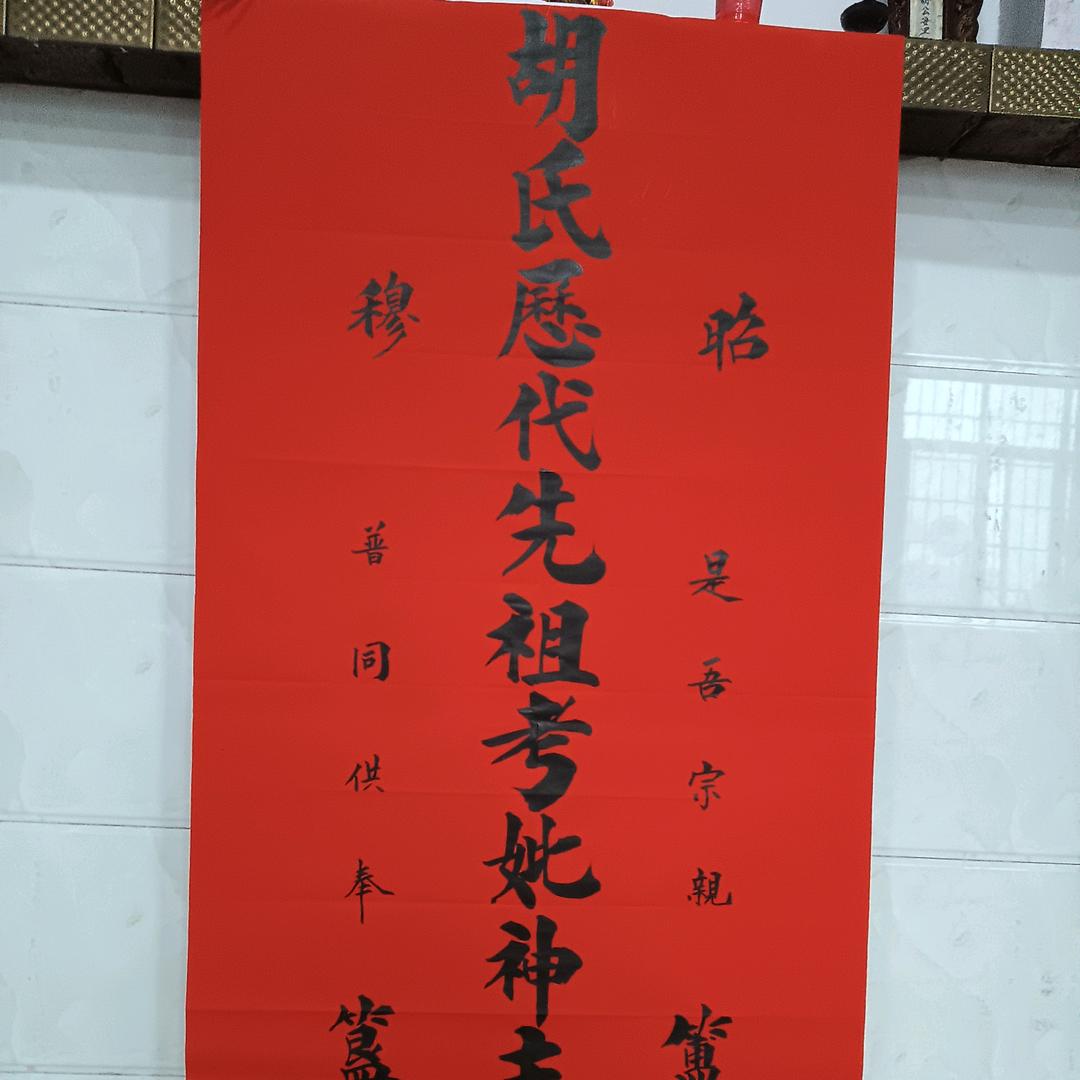 昭
是吾宗親
簠
胡氏歷代先祖考妣神主
穆
普同供奉
簋